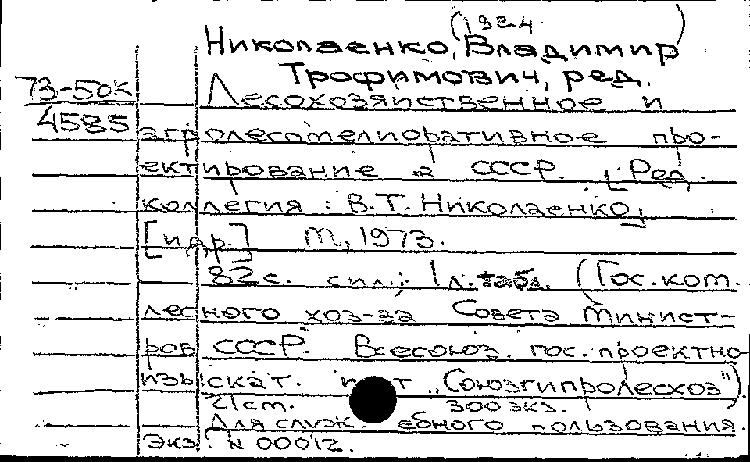 (1924 )
Николаенко, Владимир
Трофимович, ред.
73-50к Лесохозяйственное и
4585 агролесомелиоративное про-
ектирование в СССР. [Ред.
коллегия: В.Т. Николаенко
[и др.] М., 1973.
82 с. с ил.; 1 л. табл. (Гос. ком.
лесного хоз-ва Совета Минист-
ров СССР. Всесоюз. гос. проектно
изыскат. ин-т „Союзгипролесхоз").
300 экз.
Для служебного пользования.
Экз. N 00012.